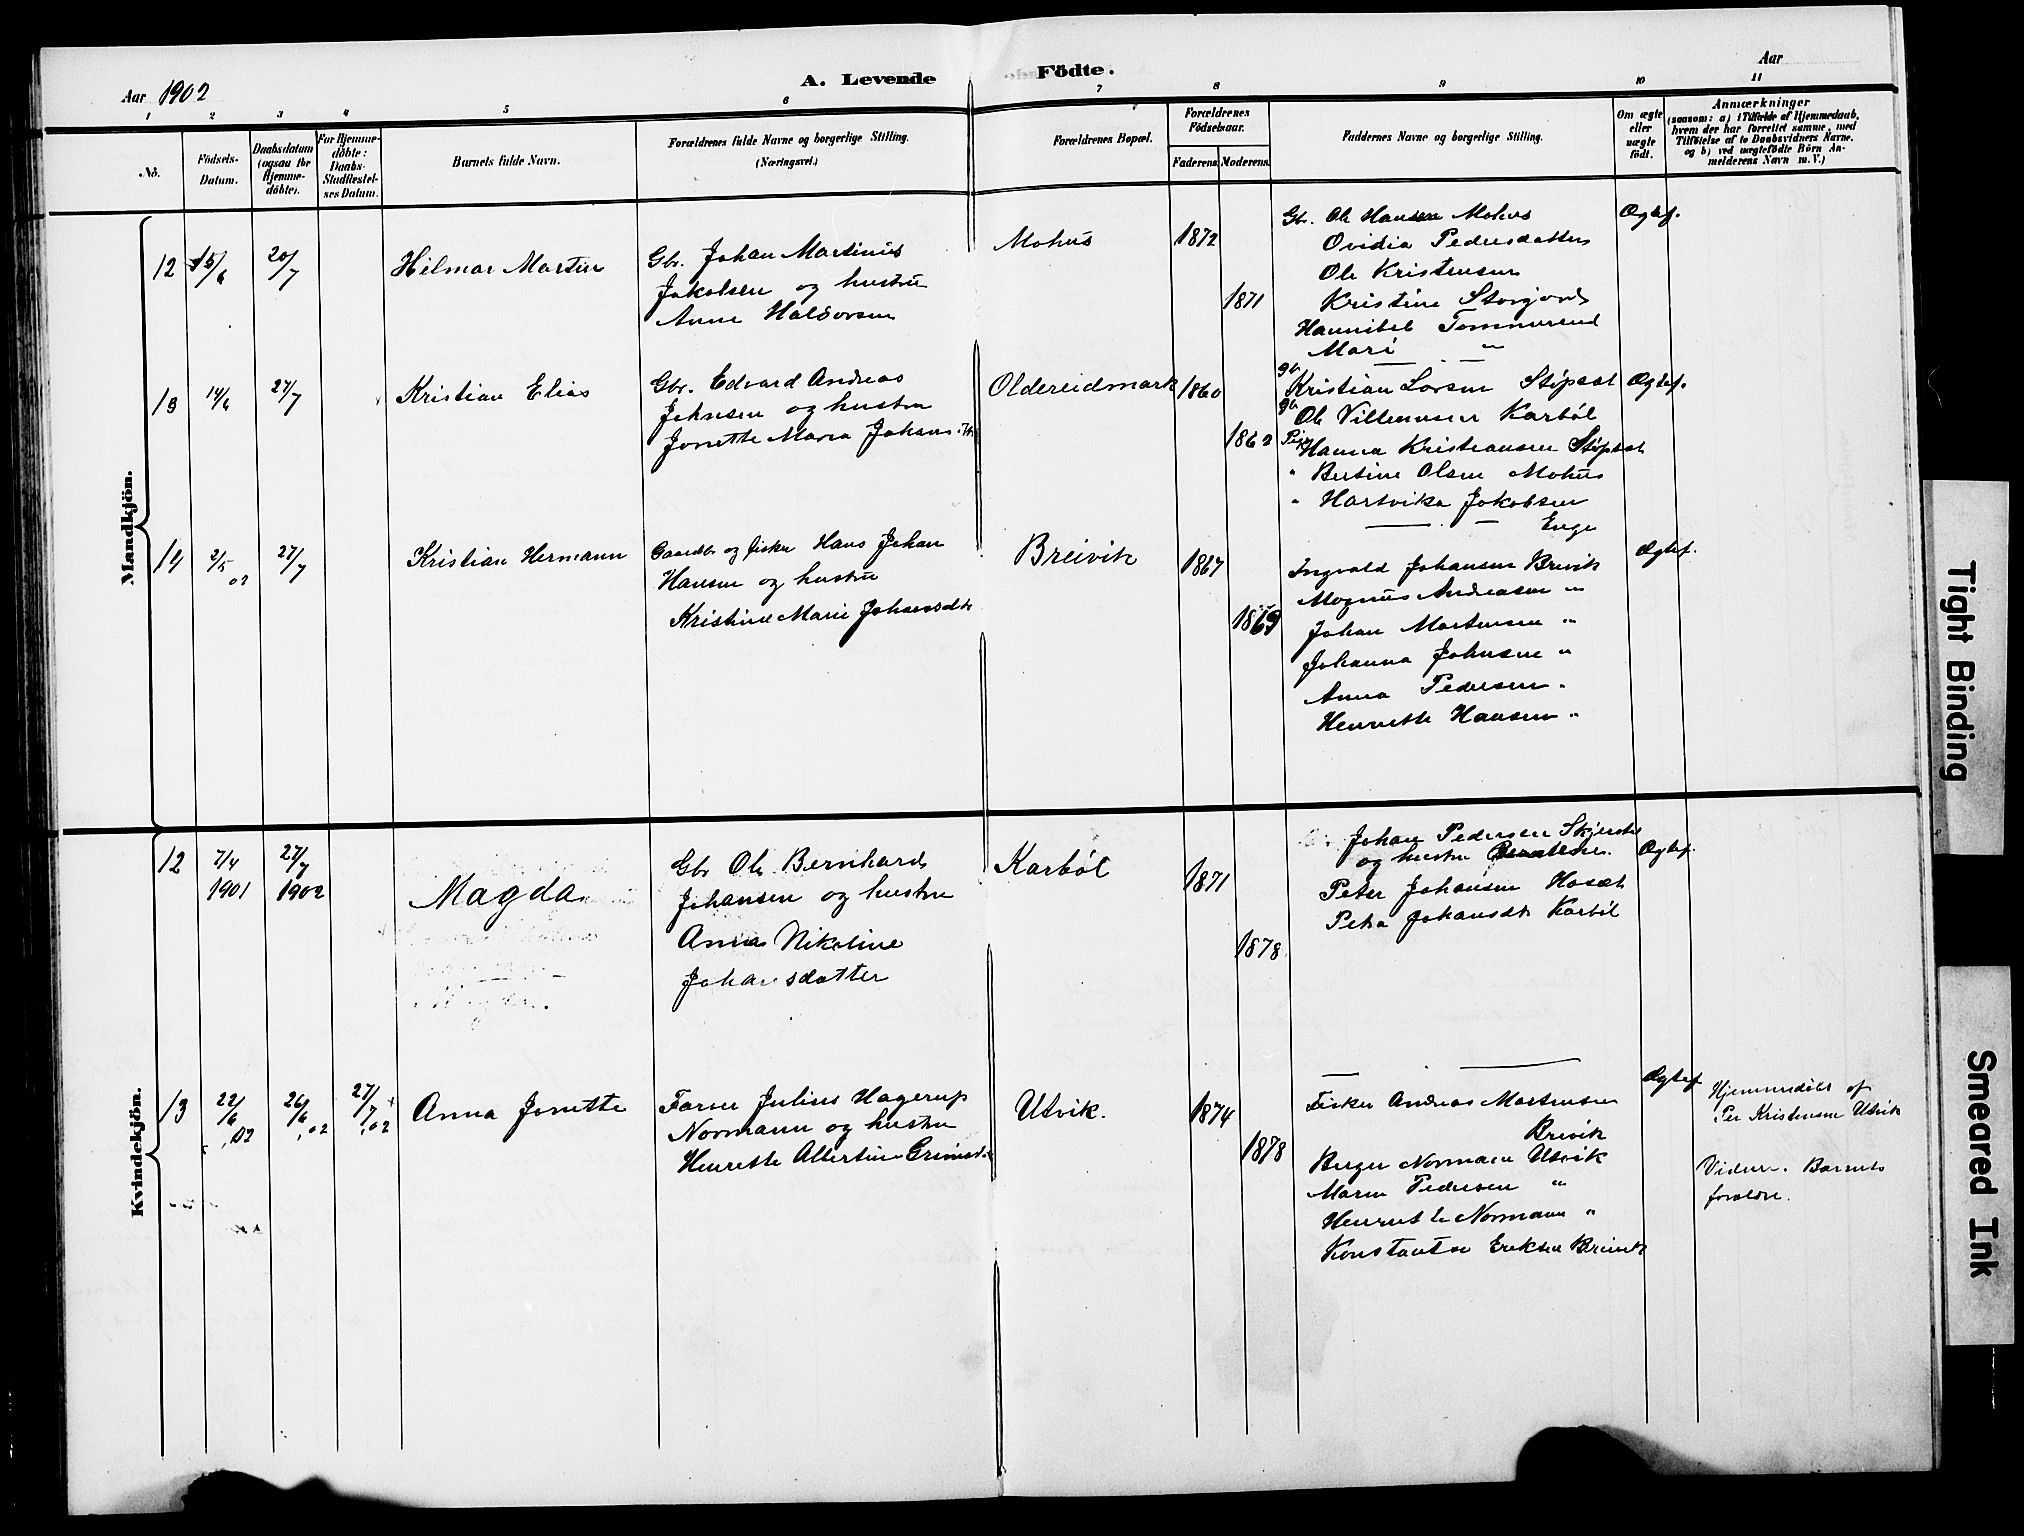 A. Levende Födte.
Aar 1902
Aar
1 2 3 4 5 6 7 8 9 10 11
No.
Födsels-Datum.
Daabsdatum (ogsaa for Hjemme-döbte).
For Hjemme-döbte: Daabs-Stadfæstel-ses Datum.
Barnets fulde Navn.
Forældrenes fulde Navne og borgerlige Stilling. (Næringsvei.)
Forældrenes Bopæl.
Forældrenes Födselsaar.
Faderens. Moderens.
Faddernes Navne og borgerlige Stilling.
Om ægte eller uægte födt.
Anmærkninger
(saasom: a) i Tilfælde af Hjemmedaab,
hvem der har forrettet samme, med
Tilföielse af to Daabsvidners Navne,
og b) ved uægtefödte Börn An-
melderens Navn m. V.)
Mandkjön.
12 15/6 20/7 Hilmar Martin
Gbr. Johan Martinus
Jakobsen og hustru
Anne Haldorsen
Mohus 1872
1871
Gbr. Ole Hansen Mohus
Ovidia Pedersdatter
Ole Kristensen
Kristine Storjord
Hannibal
Mari "
Ægtef.
13 14/6 27/7 Kristian Elias
Gbr. Edvard Andreas
Johnsen og hustru
Jonette Maria Johans.
Oldereidmark 1860
1862
gb. Kristian Larsen Stöpset
gb. Ole Villumsen Karböl
Pige Hanna Kristiansen Stöpset
" Bertine Olsen Mohus
" Hartvika Jakobsen
Enge
Ægtef.
14 2/5 02 27/7 Kristian Hermann
Gaardbr og fisker Hans Johan
Hansen og hustru
Kristine Marie Johansdt
Breivik 1867
1869
Ingvald Johansen Breivik
Magnus Andreasen "
Johan Martensen "
Johanna Johnsen "
Anna Pedersen "
Henriette Hansen "
Ægtef.
Kvindekjön.
12 7/4 1901 27/7 1902 Magda
Gbr Ole Bernhard
Johansen og hustru
Anna Nikoline
Johansdatter
Karböl 1871
1878
Johan Pedersen
og hustru
Peter Johansen Hosæt
Petra Johansdt Karböl
Ægtef.
13 22/6 .02 26/6 .02 27/7 .02 Anna Jonette
Farer Julius Hagerup
Normann og hustru
Henrette Albertine
Utvik. 1874
1878
Fisker Andreas Martensen
Breivik
Berger Normann Utvik
Maren Pedersen "
Henriette Normann "
Konstantse Eriksen Breivik
Ægtef
Hjemmedöbt af
Per Kristensen Utvik
Vidner. Barnets
forældre.
Tight Binding
Smeared Ink